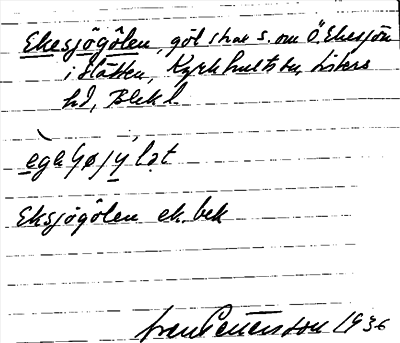 Ekesjögölen, göl strax s. om Ö. Ekesjön
i Slätten, Kyrkhults sn, Listers
hd, Blek.l.
Eksjögölen ek. bek
1936